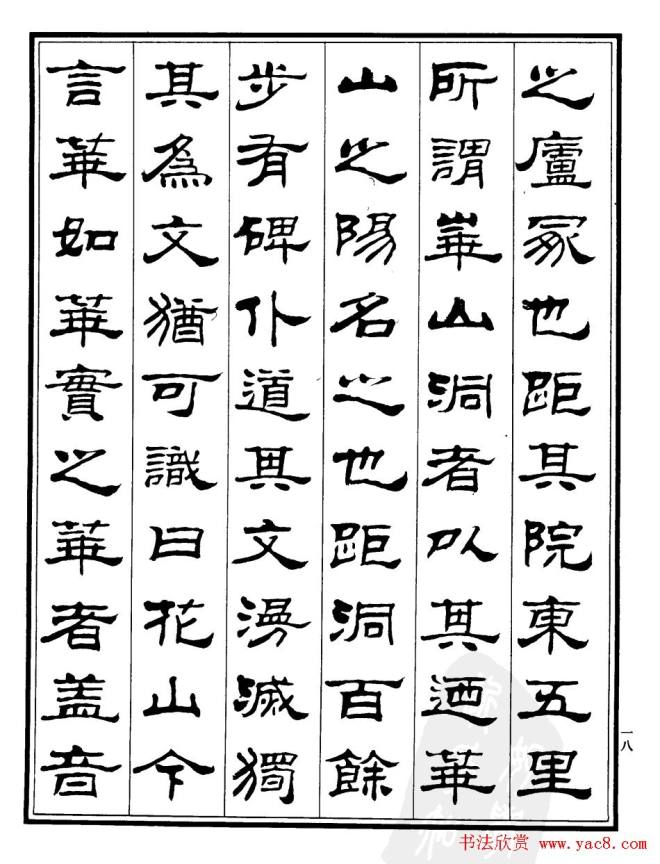 之廬冢也距其院東五里
所謂華山洞者以其迺華
山之陽名之也距洞百餘
步有碑仆道其文漫滅獨
其為文猶可識曰花山今
言華如華實之華者盖音
一八
书法欣赏 www.yac8.com